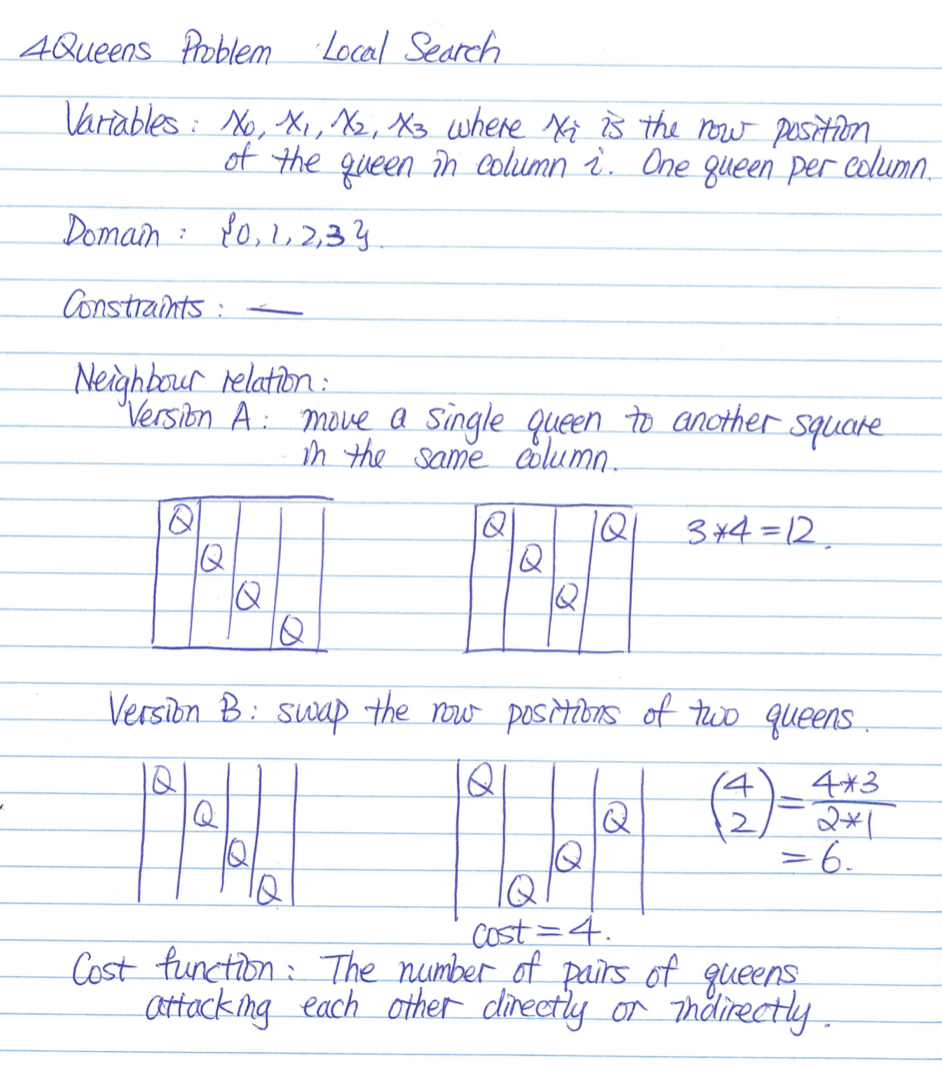 4Queens Problem Local Search
Variables: x₀, x₁, x₂, x₃ where xᵢ is the row position
of the queen in column i. One queen per column.
Domain: {0, 1, 2, 3}.
Constraints: —
Neighbour relation:
Version A: move a single queen to another square
in the same column.
Q Q Q 3*4=12.
Q Q
Q Q
Q
Version B: swap the row positions of two queens.
Q Q (4 2) = 4*3 / 2*1
Q Q
Q Q = 6.
Q Q
cost=4.
Cost function: The number of pairs of queens
attacking each other directly or indirectly.